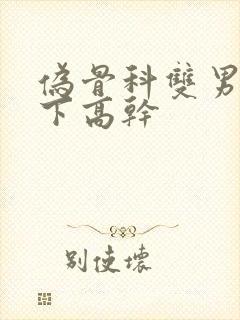 偽骨科雙男
下高幹
別使壞